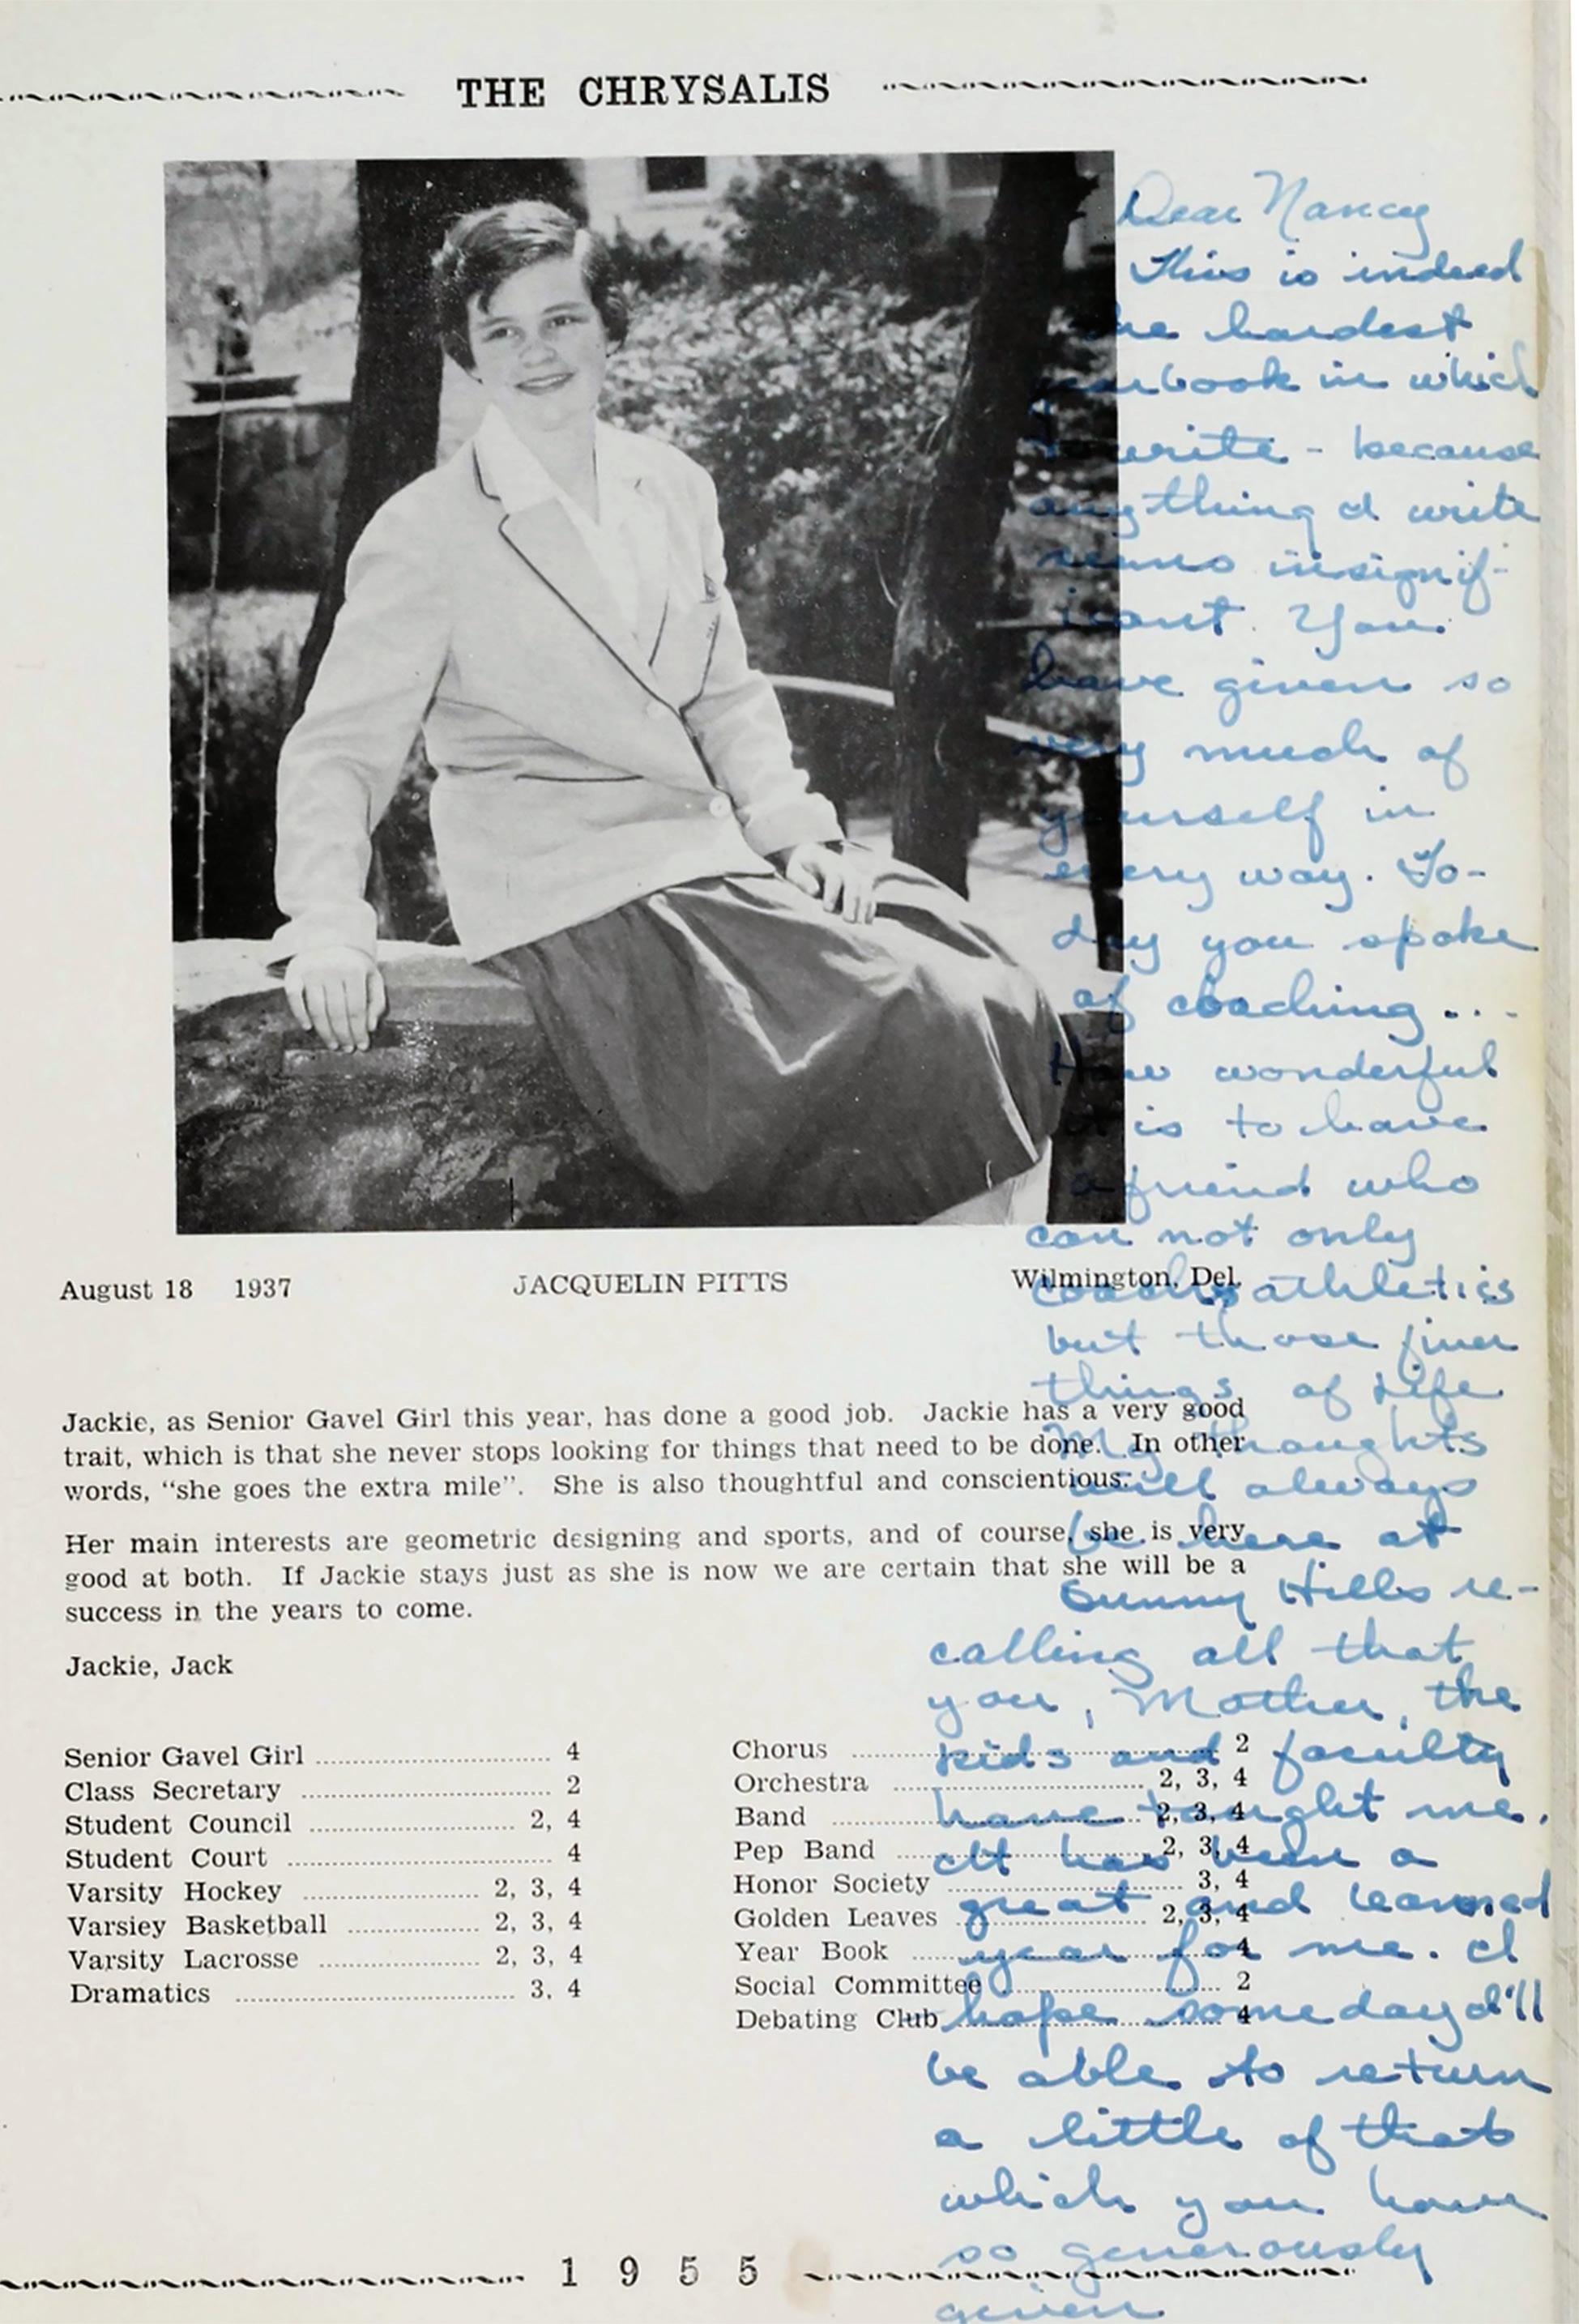 THE CHRYSALIS
August 18 1937 JACQUELIN PITTS Wilmington, Del.
Jackie, as Senior Gavel Girl this year, has done a good job. Jackie has a very good
trait, which is that she never stops looking for things that need to be done. In other
words, “she goes the extra mile”. She is also thoughtful and conscientious.
Her main interests are geometric designing and sports, and of course, she is very
good at both. If Jackie stays just as she is now we are certain that she will be a
success in the years to come.
Jackie, Jack
Senior Gavel Girl 4
Class Secretary 2
Student Council 2, 4
Student Court 4
Varsity Hockey 2, 3, 4
Varsiey Basketball 2, 3, 4
Varsity Lacrosse 2, 3, 4
Dramatics 3, 4
Chorus 2
Orchestra 2, 3, 4
Band 2, 3, 4
Pep Band 2, 3, 4
Honor Society 3, 4
Golden Leaves 2, 3, 4
Year Book 4
Social Committee 2
Debating Club 4
Dear Nancy
This is indeed
the hardest
yearbook in which
I write - because
anything I write
seems insignif-
icant. You
have given so
very much of
yourself in
every way. To-
day you spoke
of coaching...
How wonderful
it is to have
a friend who
can not only
coach athletics
but those finer
things of Life
My thoughts
will always
be here at
Sunny Hills re-
calling all that
you, Mother, the
kids and faculty
have taught me.
It has been a
great and learned
year for me. I
hope someday I'll
be able to return
a little of that
which you have
so generously
given
1955